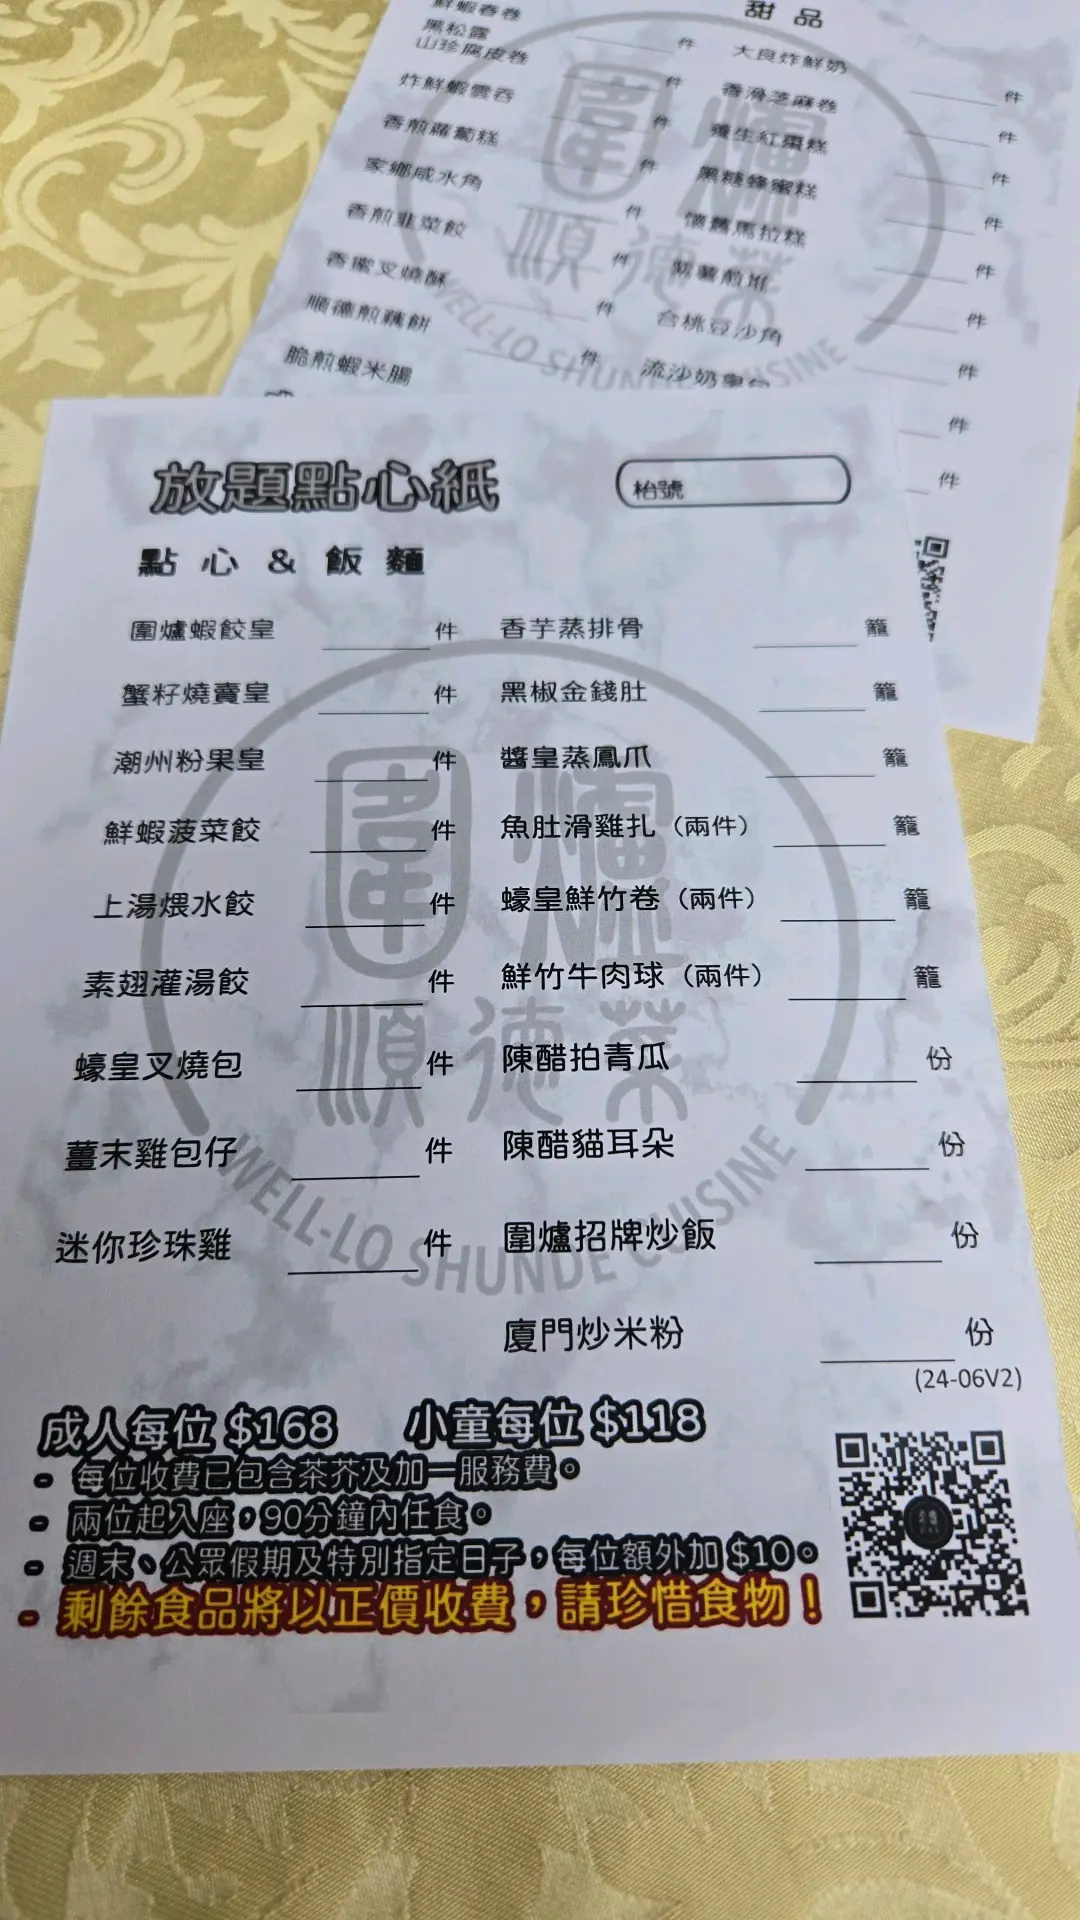 甜品
鮮蝦春卷 件 大良炸鮮奶 件
黑松露
山珍腐皮卷 件 香滑芝麻卷 件
炸鮮蝦雲吞 件 養生紅棗糕 件
香煎蘿蔔糕 件 黑糖蜂蜜糕 件
家鄉咸水角 件 懷舊馬拉糕 件
香煎韭菜餃 件 煎堆 件
香蜜叉燒酥 件 合桃豆沙角 件
順德煎藕餅 件 流沙奶皇包 件
脆煎蝦米腸 件
放題點心紙
枱號
點心 & 飯麵
圍爐蝦餃皇 件 香芋蒸排骨 籠
蟹籽燒賣皇 件 黑椒金錢肚 籠
潮州粉果皇 件 醬皇蒸鳳爪 籠
鮮蝦菠菜餃 件 魚肚滑雞扎（兩件） 籠
上湯煨水餃 件 蠔皇鮮竹卷（兩件） 籠
素翅灌湯餃 件 鮮竹牛肉球（兩件） 籠
蠔皇叉燒包 件 陳醋拍青瓜 份
薑末雞包仔 件 陳醋貓耳朵 份
迷你珍珠雞 件 圍爐招牌炒飯 份
廈門炒米粉 份
(24-06V2)
圍爐
順德菜
WELL-LO SHUNDE CUISINE
成人每位 $168 小童每位 $118
- 每位收費已包含茶芥及加一服務費。
- 兩位起入座，90分鐘內任食。
- 週末、公眾假期及特別指定日子，每位額外加 $10。
- 剩餘食品將以正價收費，請珍惜食物！